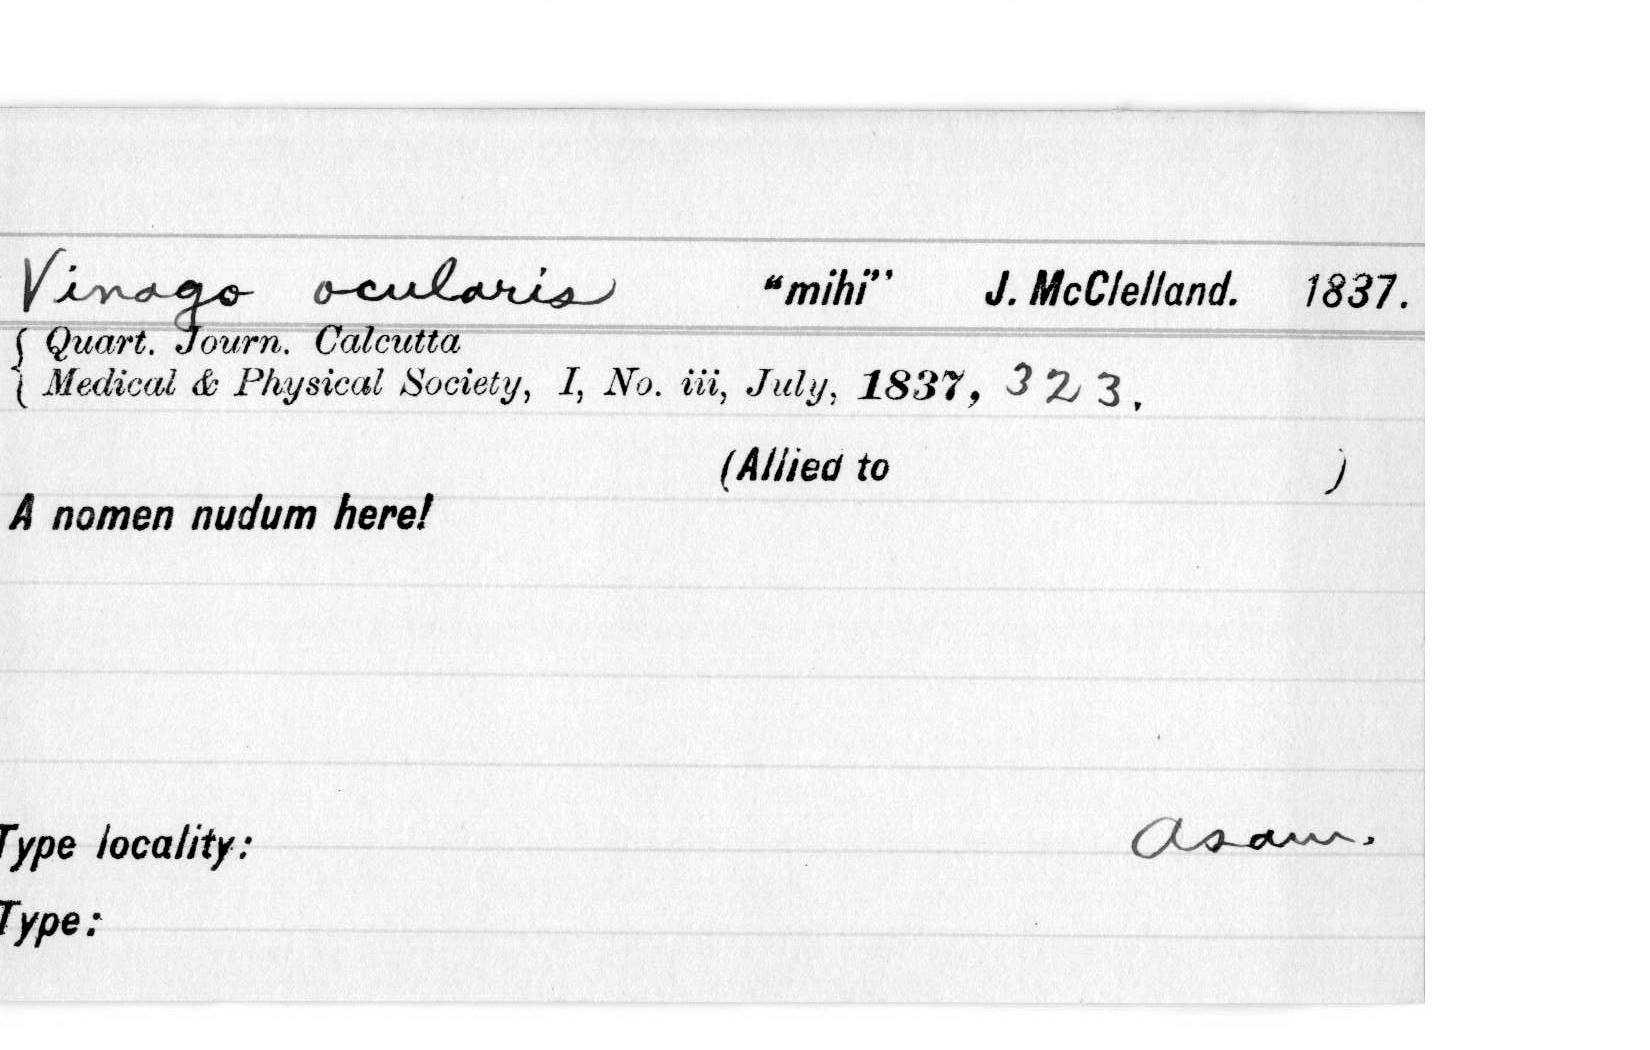 Vinago ocularis "mihi" J. McClelland. 1837.
Quart. Journ. Calcutta
Medical & Physical Society, I, No. iii, July, 1837, 323.
(Allied to )
A nomen nudum here!
Type locality: Asam.
Type: